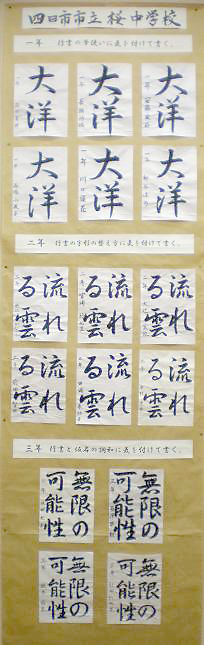 四日市市立桜中学校
一年 行書の筆使いに気を付けて書く。
大洋
一年
大洋
一年
大洋
一年
大洋
一年
大洋
一年
大洋
一年
二年 行書の字形の整え方に気を付けて書く。
流れ
る雲
流れ
る雲
流れ
る雲
流れ
る雲
流れ
る雲
流れ
る雲
三年 行書と仮名の調和に気を付けて書く。
無限の
可能性
無限の
可能性
無限の
可能性
無限の
可能性